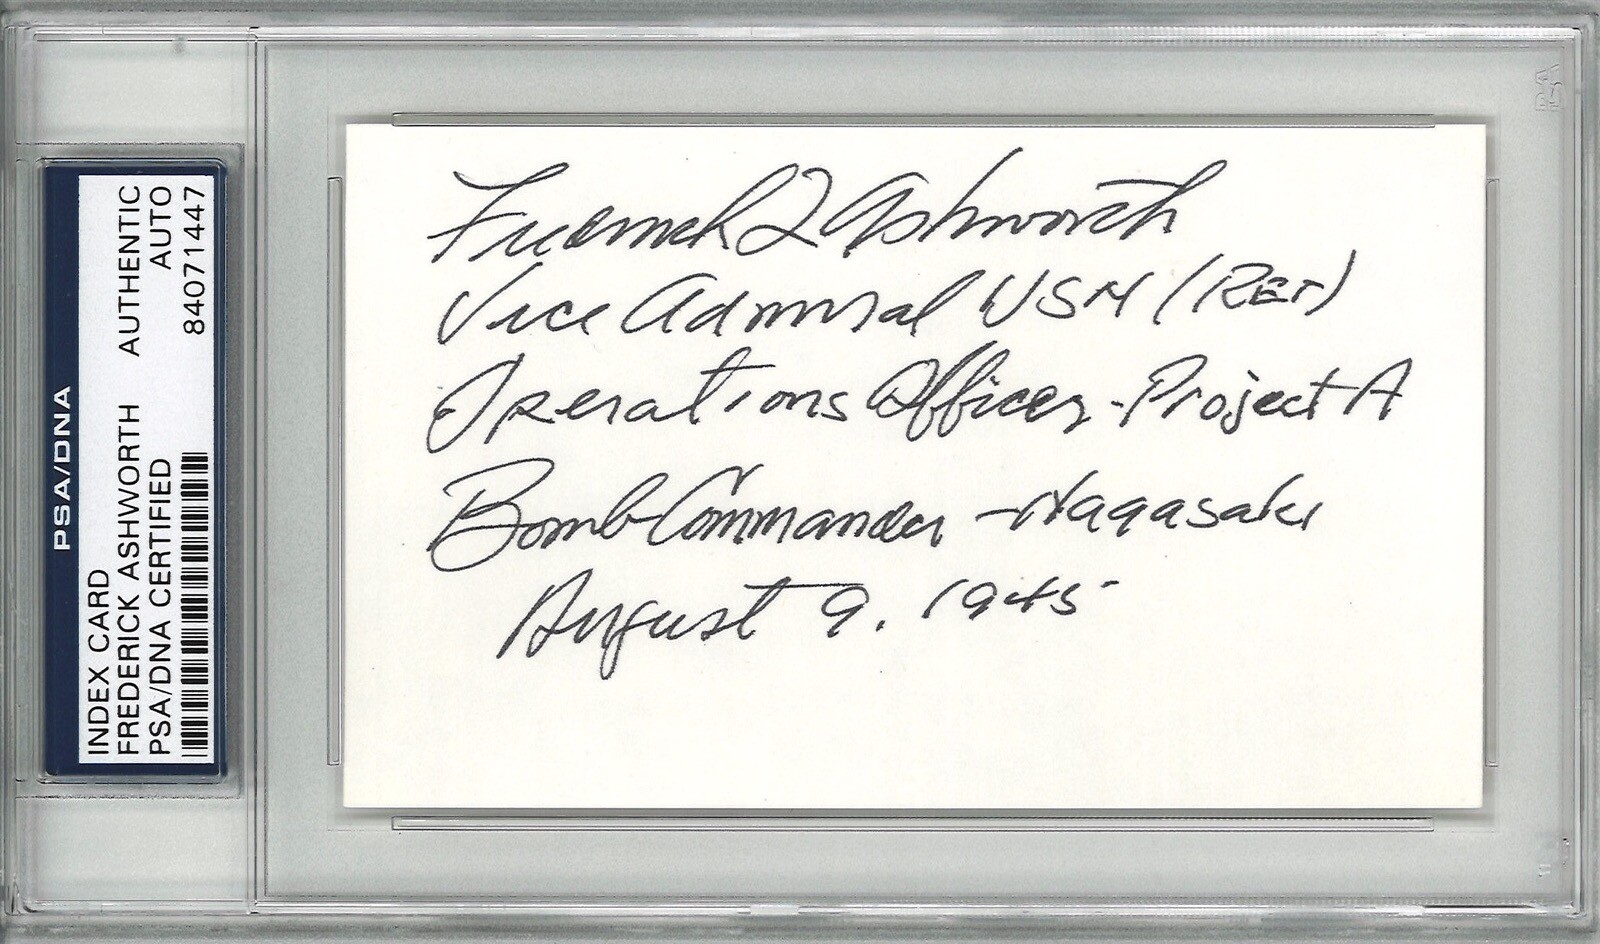 PSA/DNA
INDEX CARD AUTHENTIC
FREDERICK ASHWORTH AUTO
PSA/DNA CERTIFIED 84071447
Frederick L Ashworth
Vice Admiral USN (RET)
Operations Officer - Project A
Bomb Commander - Nagasaki
August 9, 1945